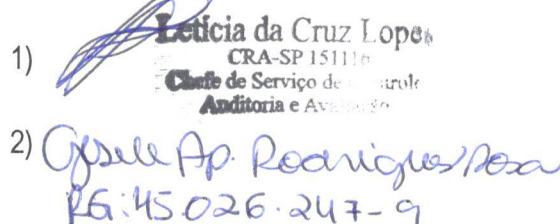 1) Letícia da Cruz Lopes
CRA-SP 15111
Chefe de Serviço de
Auditoria e
2) Gisele Ap. Rodrigues Rosa
RG: 45.026.247-9